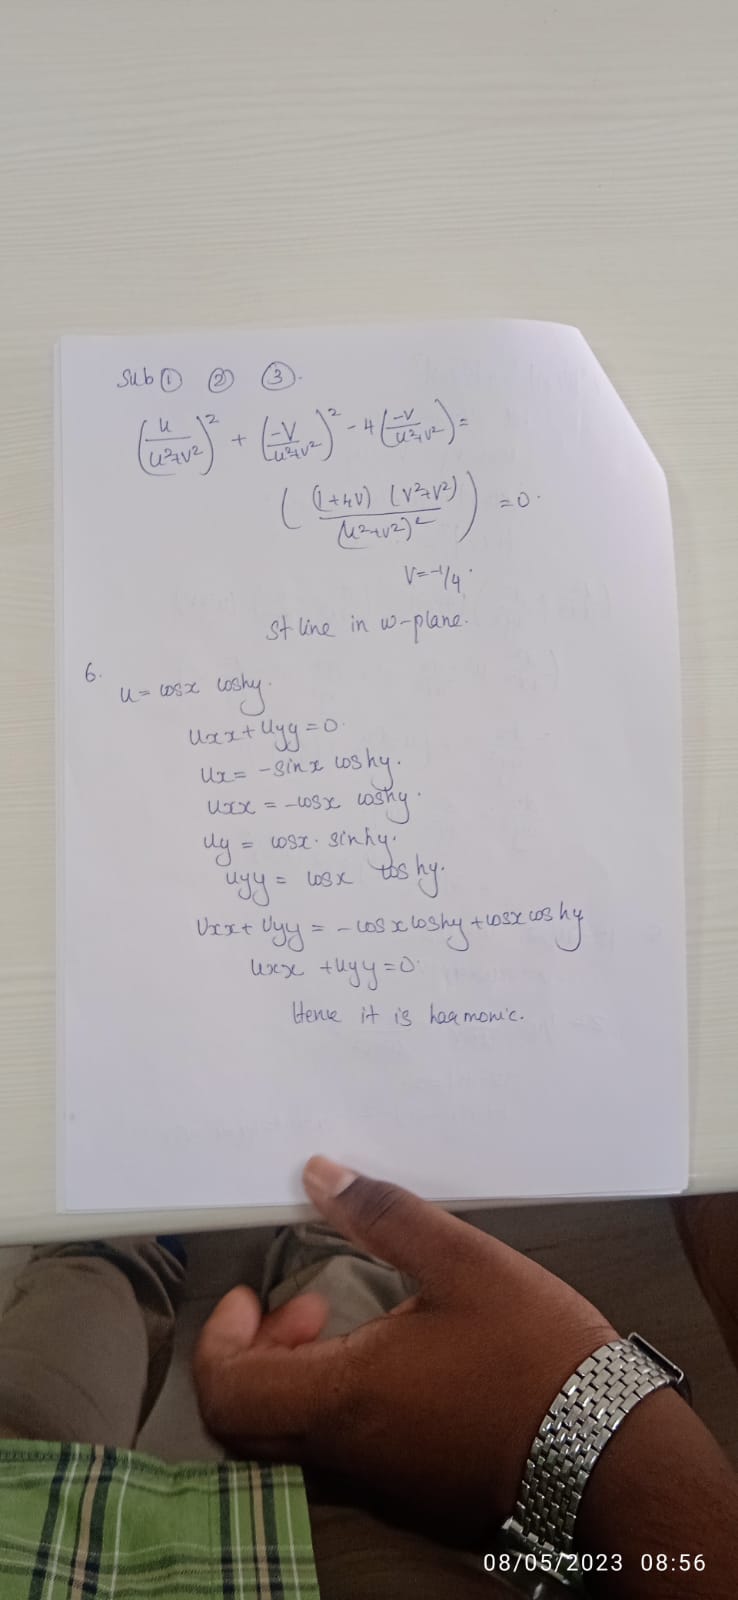 Sub ① ② ③.
(u/(u²+v²))² + (-v/(u²+v²))² - 4(-v/(u²+v²)) =
((1+4v) (v²+v²)/(u²+v²)²) = 0.
V = -1/4.
St line in w-plane.
6.
u = cosx coshy.
uxx + uyy = 0.
ux = -sinx coshy.
uxx = -cosx coshy.
uy = cosx. sinhy.
uyy = cosx coshy.
Uxx + Uyy = -cosx coshy + cosx coshy
uxx + uyy = 0.
Hence it is harmonic.
08/05/2023 08:56